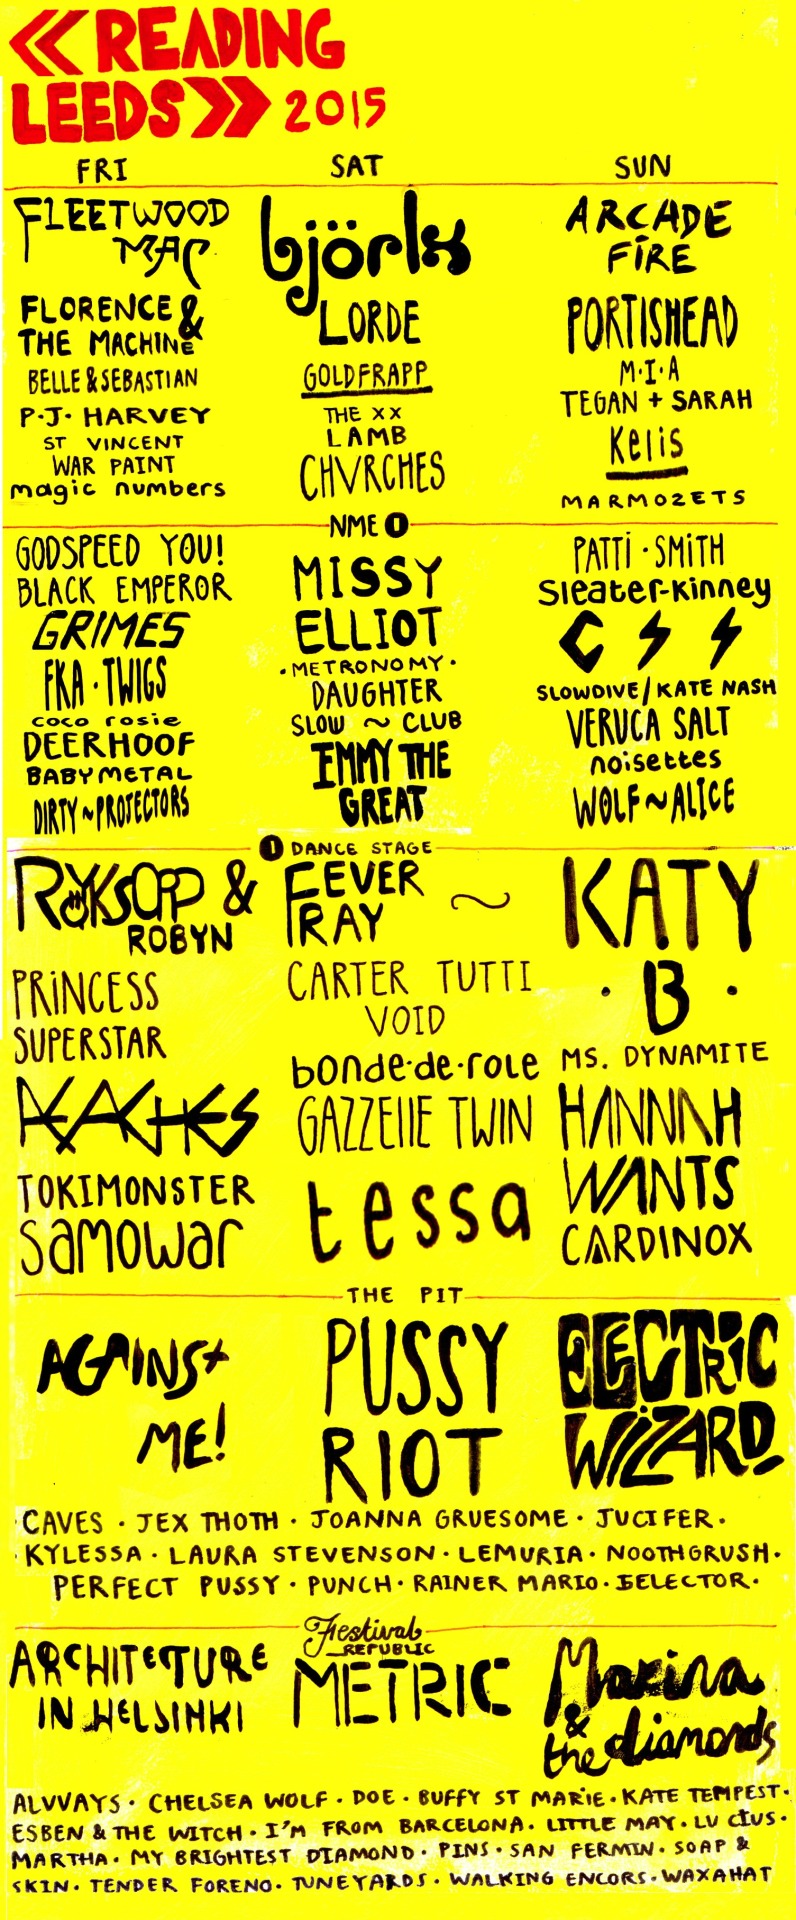 << READING
LEEDS >> 2015
FRI
SAT
SUN
FLEETWOOD
MAC
FLORENCE &
THE MACHINE
BELLE & SEBASTIAN
P·J· HARVEY
ST VINCENT
WAR PAINT
magic numbers
björk
LORDE
GOLDFRAPP
THE XX
LAMB
CHVRCHES
ARCADE
FIRE
PORTISHEAD
M·I·A
TEGAN + SARAH
Kelis
MARMOZETS
NME 1
GODSPEED YOU!
BLACK EMPEROR
GRIMES
FKA·TWIGS
coco rosie
DEERHOOF
BABYMETAL
DIRTY~PROTECTORS
MISSY
ELLIOT
·METRONOMY·
DAUGHTER
SLOW ~ CLUB
EMMY THE
GREAT
PATTI·SMITH
Sleater-Kinney
CSS
SLOWDIVE/KATE NASH
VERUCA SALT
noisettes
WOLF~ALICE
1 DANCE STAGE
RÖYKSOPP &
ROBYN
PRINCESS
SUPERSTAR
PEACHES
TOKIMONSTER
Samowar
FEVER
RAY ~
CARTER TUTTI
VOID
bonde·de·role
GAZZEllE TWIN
tessa
KATY
·B·
MS. DYNAMITE
HANNAH
WANTS
CARDINOX
THE PIT
AGAINST
ME!
PUSSY
RIOT
ELECTRIC
WIZARD
CAVES · JEX THOTH · JOANNA GRUESOME · JUCIFER·
·KYLESSA · LAURA STEVENSON · LEMURIA · NOOTHGRUSH·
PERFECT PUSSY · PUNCH · RAINER MARIO · SELECTOR·
Festival
REPUBLIC
ARCHITETURE
IN HELSINKI
METRIC
Marina
&
the diamonds
ALVVAYS · CHELSEA WOLF · DOE · BUFFY ST MARIE · KATE TEMPEST·
ESBEN & THE WITCH · I'M FROM BARCELONA · LITTLE MAY · LUCIUS·
MARTHA · MY BRIGHTEST DIAMOND · PINS · SAN FERMIN · SOAP &
SKIN · TENDER FORENO · TUNEYARDS · WALKING ENCORS · WAXAHAT